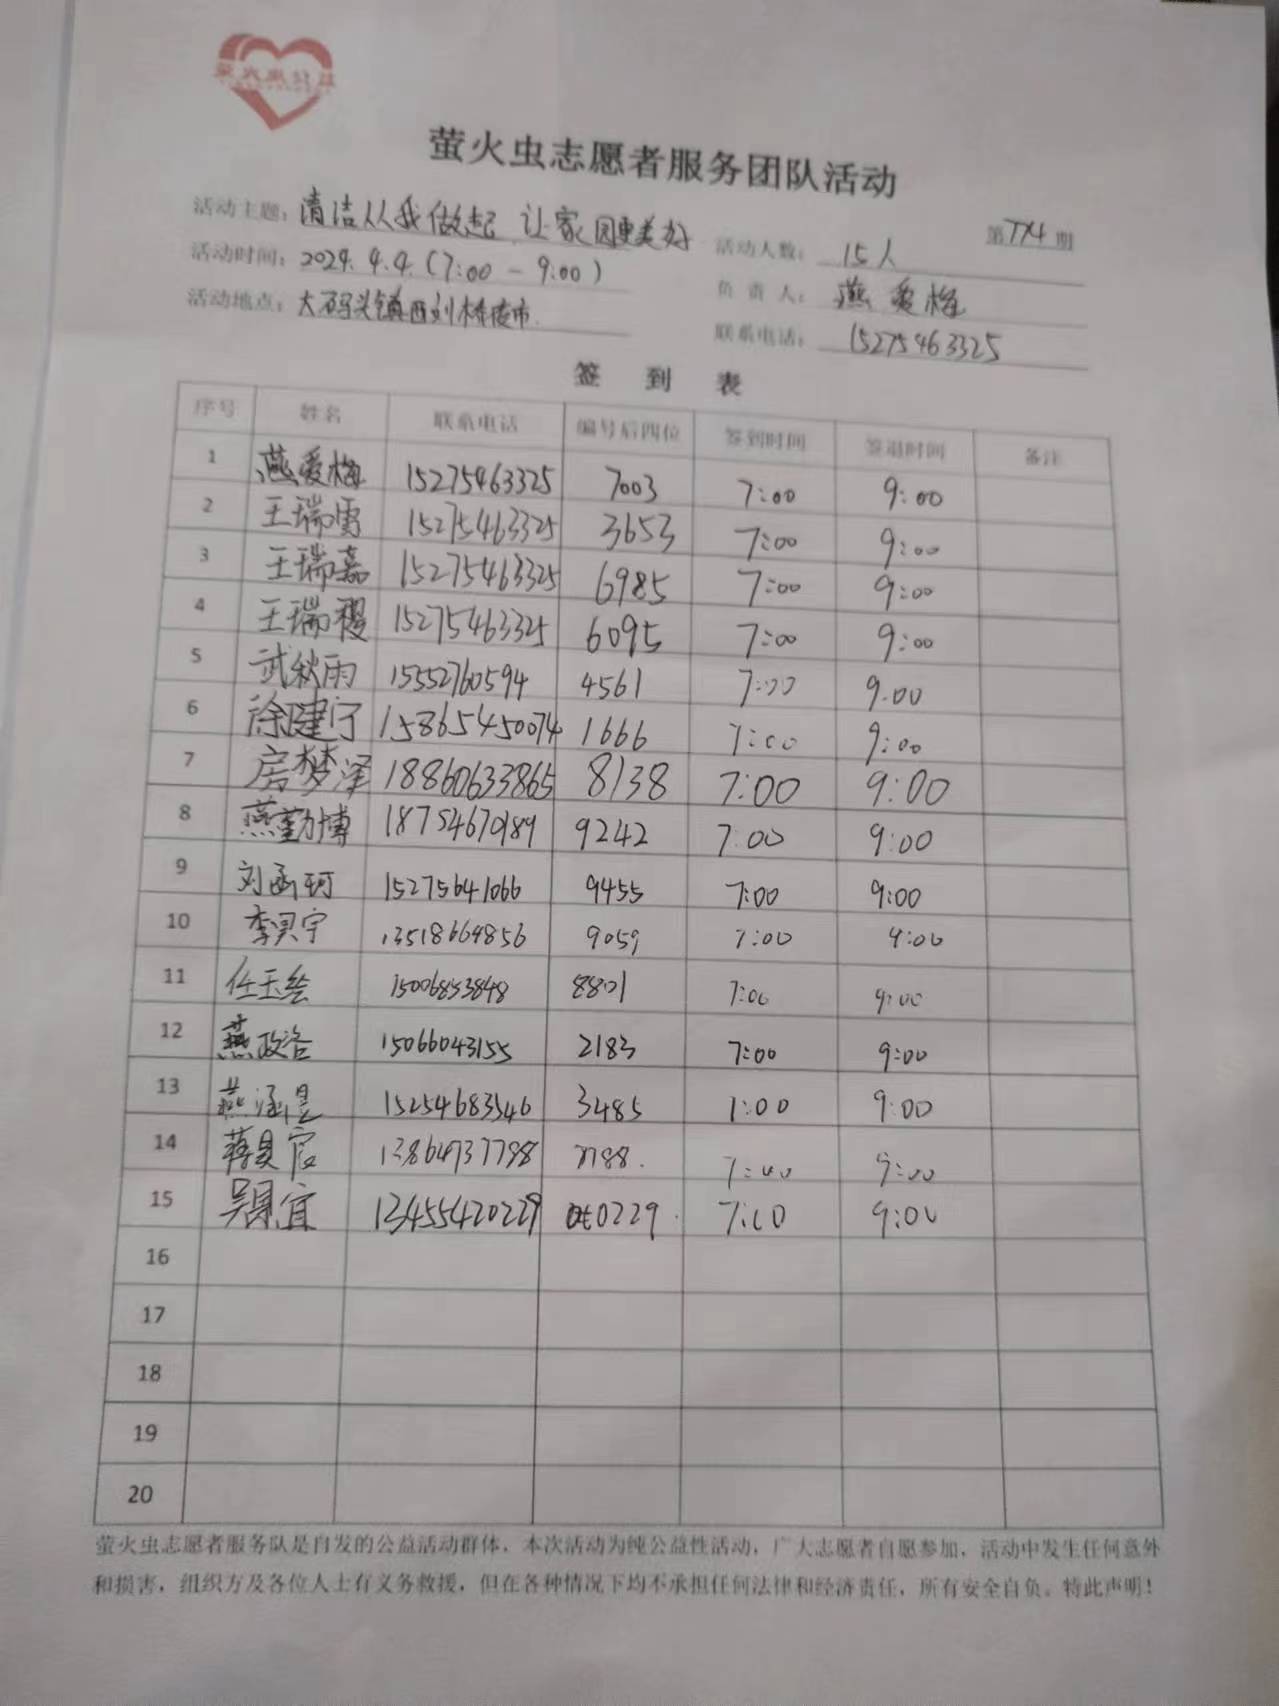 萤火虫志愿者服务团队活动
活动主题：清洁从我做起 让家园更美好 第774期
活动时间：2024.4.4.(7:00-9:00) 活动人数：15人
活动地点：大码头镇西刘桥 负责人：燕爱梅
联系电话：15275463325
签 到 表
序号 姓名 联系电话 编号后四位 签到时间 签退时间 备注
1 燕爱梅 15275463325 7003 7:00 9:00
2 王瑞雪 15275463325 3653 7:00 9:00
3 王瑞嘉 15275463325 6985 7:00 9:00
4 王瑞稷 15275463325 6095 7:00 9:00
5 武秋雨 15552760594 4561 7:00 9.00
6 徐健宁 15865450074 1666 7:00 9:00
7 房梦泽 18860633865 8138 7:00 9:00
8 燕勤博 18754670189 9242 7:00 9:00
9 刘函珂 15275641066 9455 7:00 9:00
10 李昊宇 13518664856 9059 7:00 9:00
11 任玉绘 15006853848 8801 7:00 9:00
12 燕政洛 15066043155 2183 7:00 9:00
13 燕涵昱 15254683546 3485 7:00 9:00
14 蒋昊宸 13864937798 7:00 9:00
15 吴昊宜 13455420229 0229 7:00 9:00
16
17
18
19
20
萤火虫志愿者服务队是自发的公益活动群体，本次活动为纯公益性活动，广大志愿者自愿参加，活动中发生任何意外
和损害，组织方及各位人士有义务救援，但在各种情况下均不承担任何法律和经济责任，所有安全自负。特此声明！